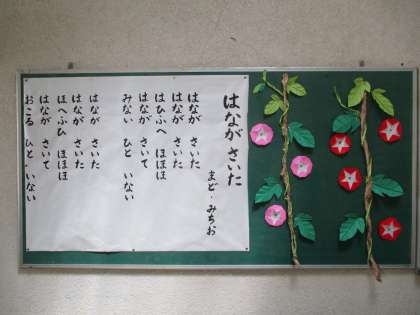 はながさいた
まど・みちお
はなが さいた
はなが さいた
はひふへ ほほほ
はなが さいて
みない ひと いない
はなが さいた
はなが さいた
ほへふひ ほほほ
はなが さいて
おこる ひと いない